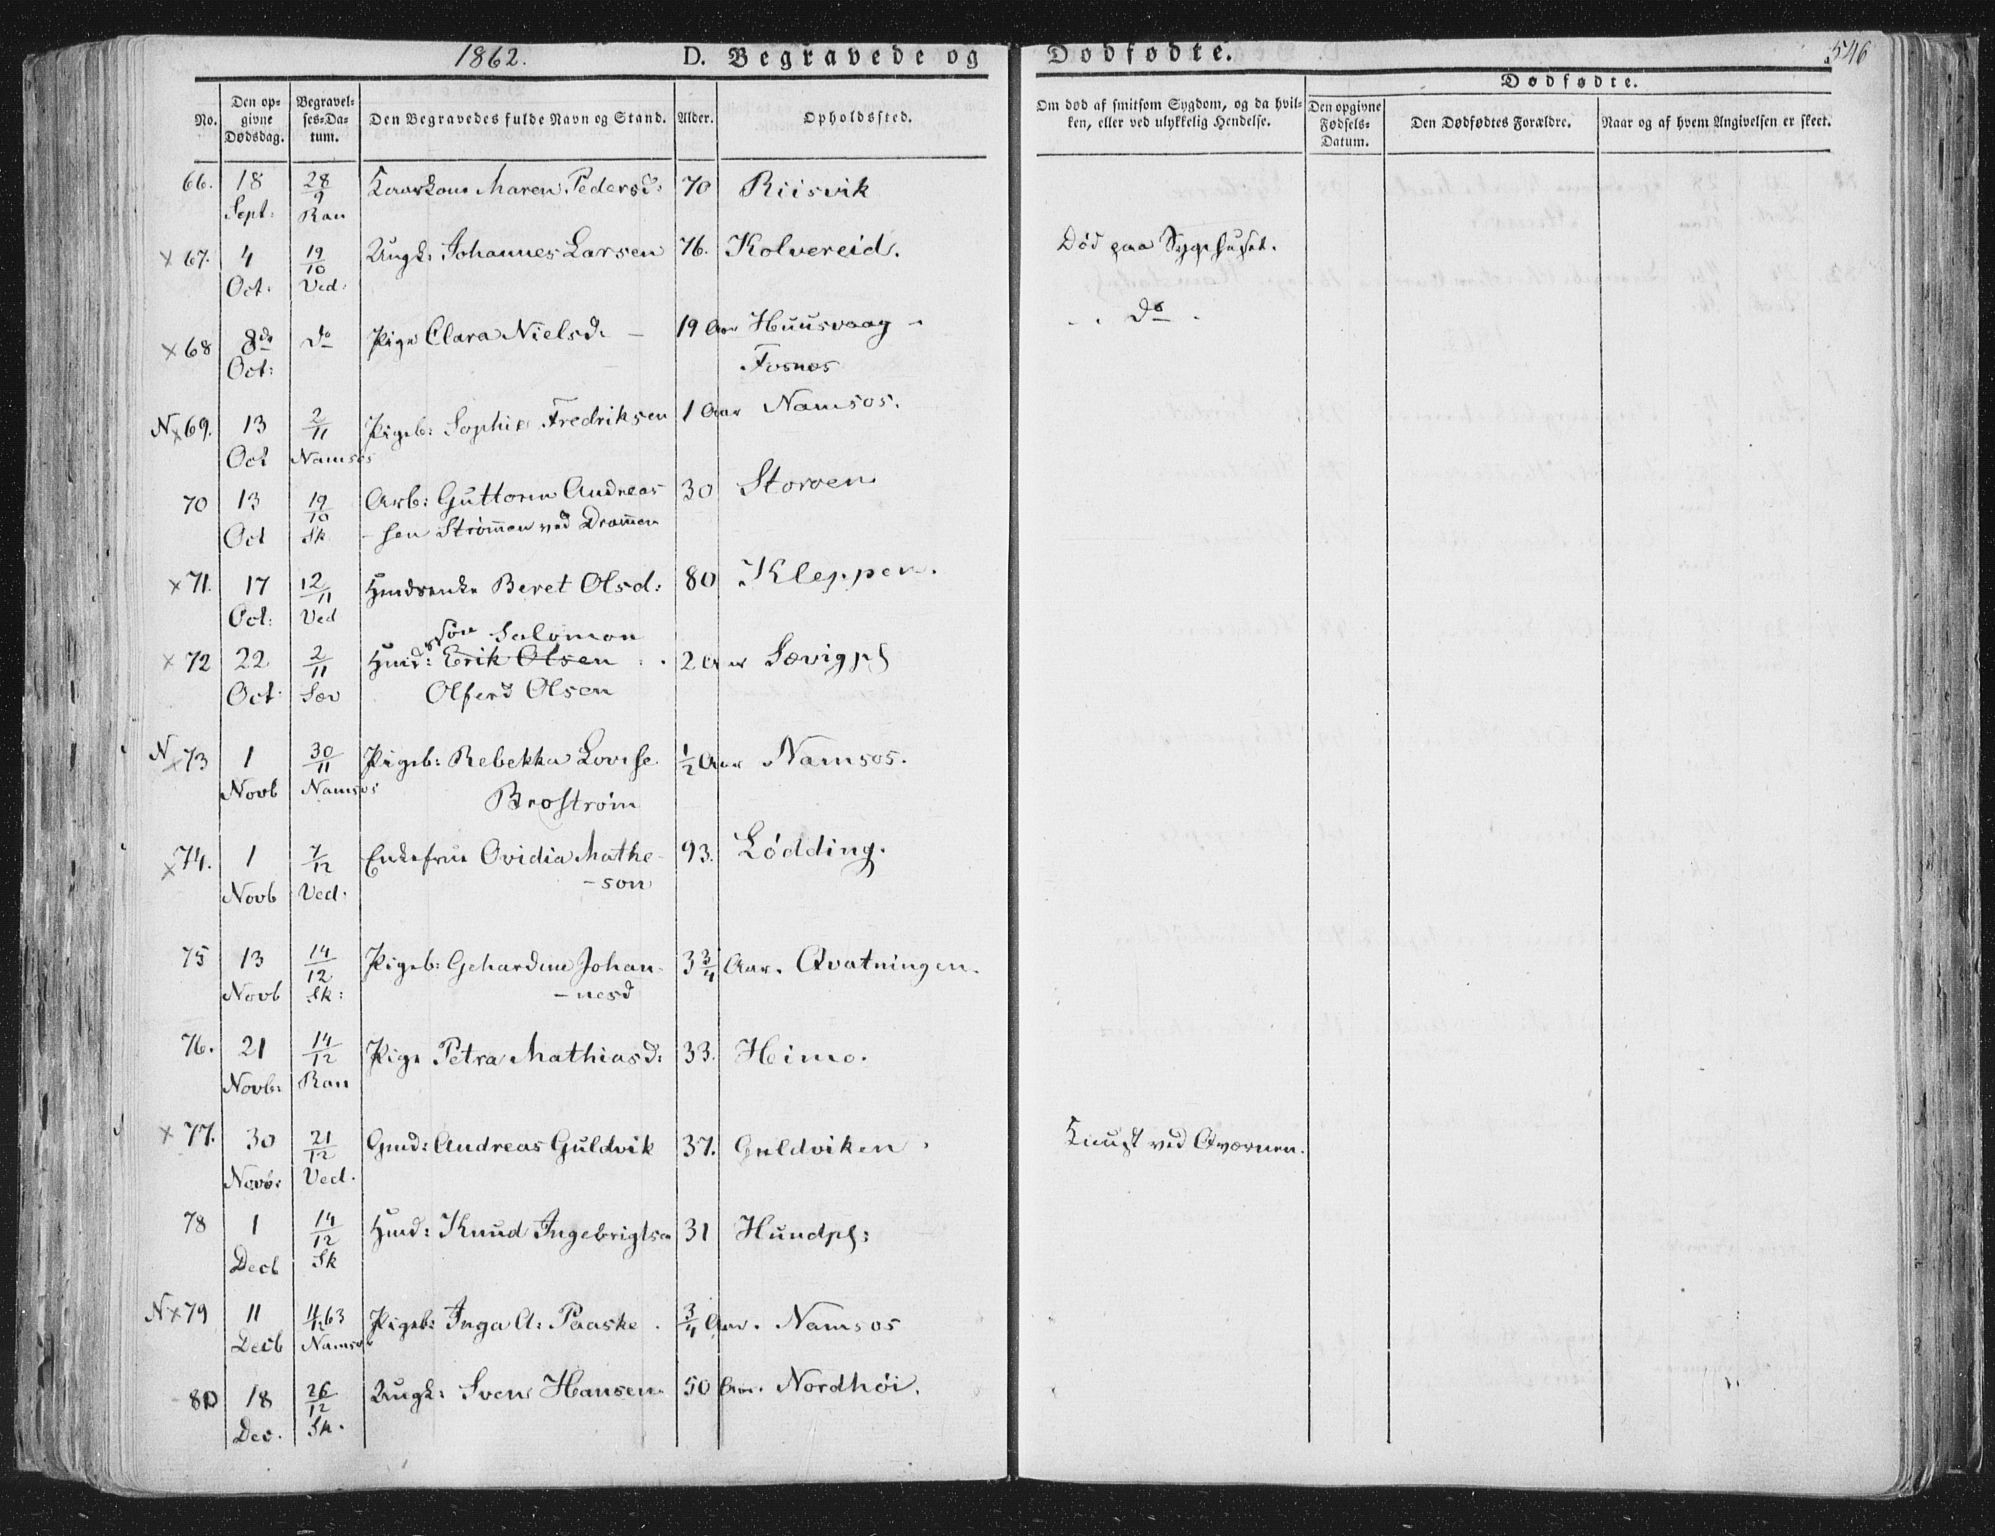 1862. D. Begravede og Dødfødte. 546
No. Den opgivne Dødsdag. Begravelses-Datum. Den Begravedes fulde Navn og Stand. Alder. Opholdssted. Om død af smitsom Sygdom, og da hvilken, eller ved ulykkelig Hendelse. Dødfødte. Den opgivne Fødsels-Datum. Den Dødfødtes Forældre. Naar og af hvem Angivelsen er skeet.
66. 18 28/9 Maren Pedersd: 70 Riisvik
Sept: Ran
x 67. 4 19/10 Ungk: Johannes Larsen 76. Kolvereid. Død paa Sygehuset.
Oct: Ved:
x 68 8de do Pige Clara Nielsd. — 19 Aar Huusvaag - do
Oct: Fosnæs
N x 69. 13 2/11 Pigeb: Sophie Fredriksen 1 Aar Namsos.
Oct Namsos
70 13 19/10 Arb: Guttorm Andreas 30 Storøen
Oct Sk -sen Strømmen ved Drammen
x 71. 17 12/11 Beret Olsd: 80 Kleppen.
Oct: Ved
Søn Salomon
x 72 22 2/11 Hmd: Erik Olsen 2 Aar Sævigpl
Oct: Sæv Olferd Olsen
N x 73 1 30/11 Pigeb: Rebekka Lovise 1/2 Aar Namsos.
Novb Namsos Broström
x 74. 1 7/12 Enkefrue Ovidia Mathe- 93. Lødding.
Novb Ved. -son
75 13 14/12 Pigeb: Gehardine Johan- 3 3/4 Aar. Qvatningen.
Novb Sk: -nesd
76. 21 14/12 Pige Petra Mathiasd: 33. Heimo.
Novb: Ran
x 77. 30 21/12 Gmd: Andreas Guldvik 37. Guldviken Knust ved Qværnen.
Novb: Ved.
78 1 14/12 Hmd: Knud Ingebrigtsen 31 Hundpl:
Decb Sk
N x 79 11 4/1.63 Pigeb: Inga A: Paaske. 3/4 Aar. Namsos
Decb Namsos
80 18 26/12 Ungk: Sven Hansen 50 Aar. Nordhöi.
Dec. Sk.